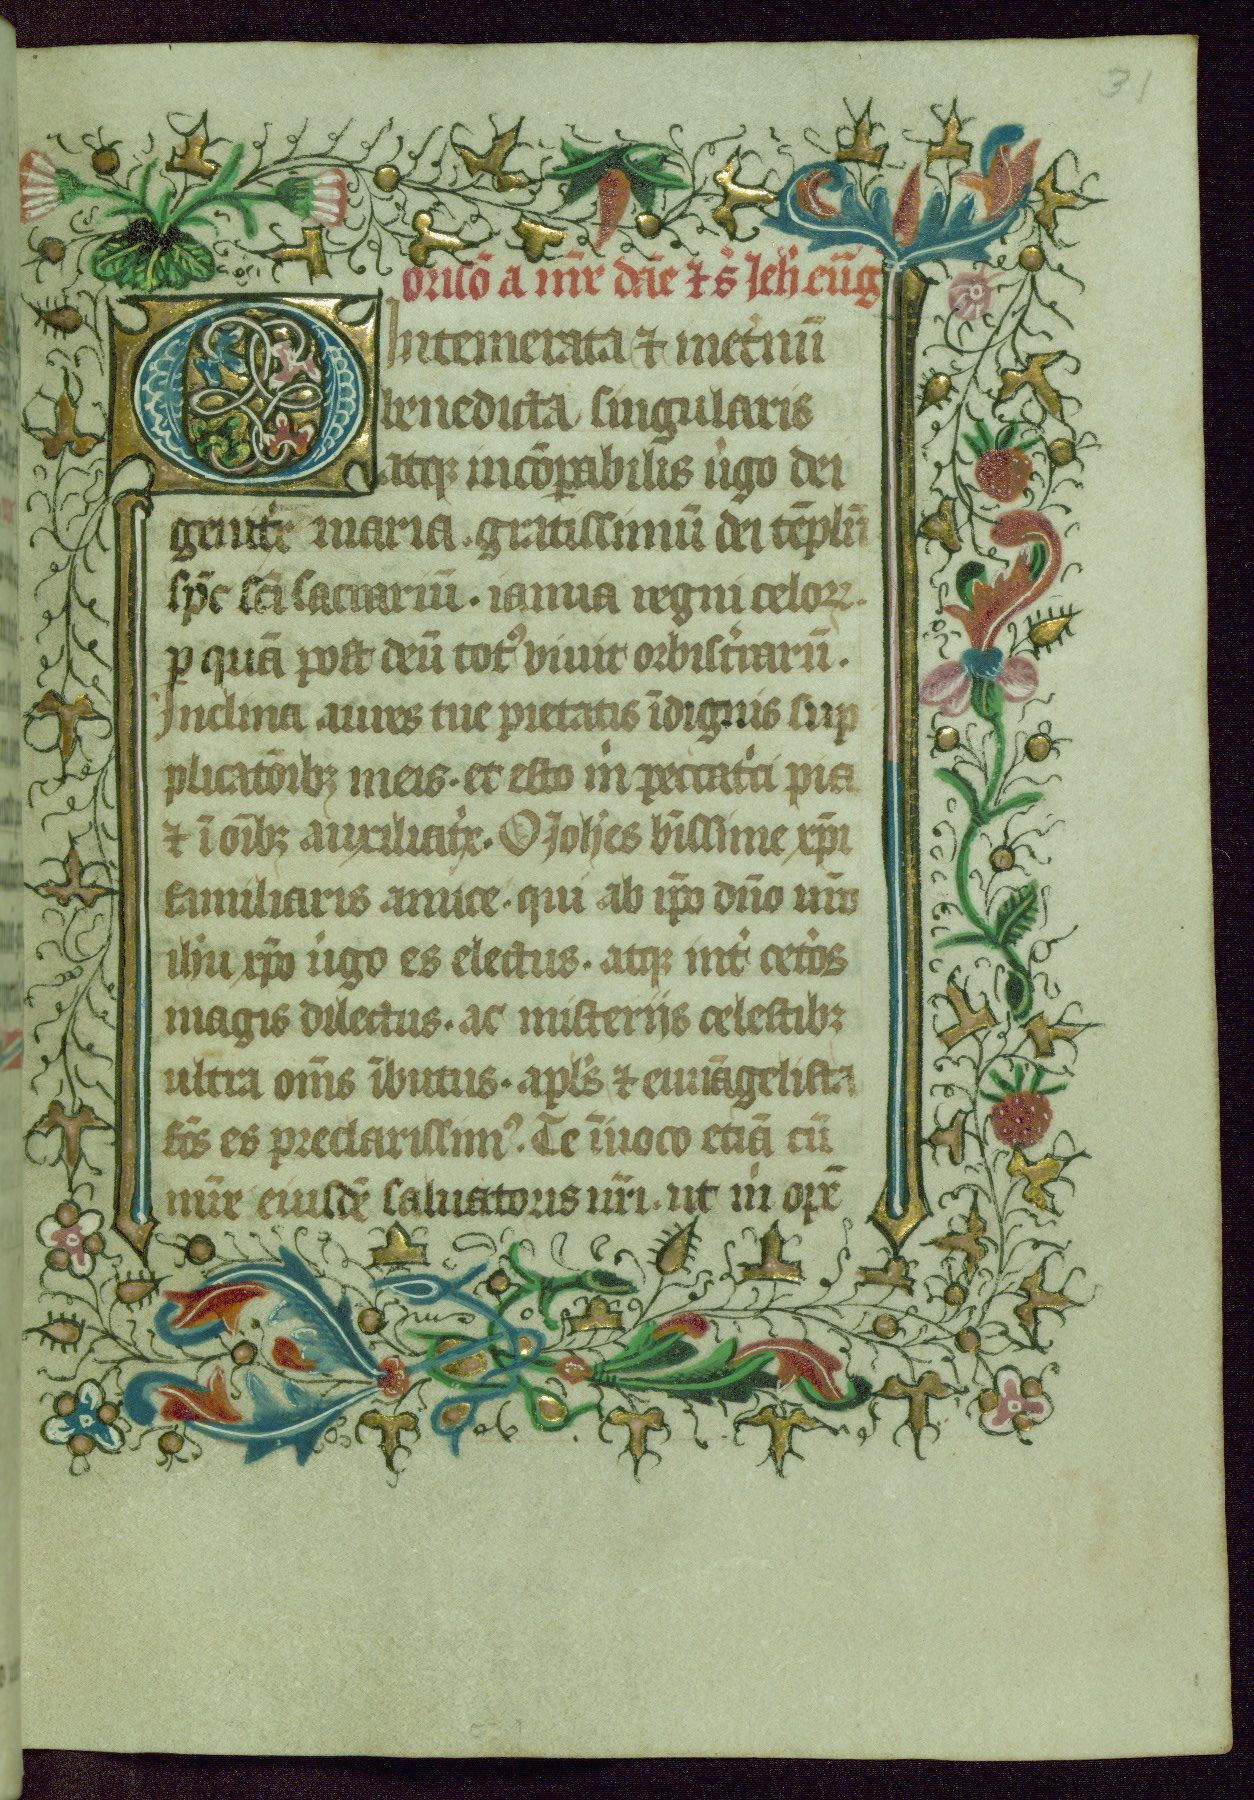 31
orisō a nr̄e dn̄e ⁊ s̄ Joh̄ euāg
O Intemerata ⁊ in et̾nū
benedicta singularis
atqꝫ incōꝑabilis u̾go dei
genitx̾ maria. gratissimū dei tēplū
sp̄c sc̄i sacrariū. ianua regni celoꝝ.
p quā post deū totꝰ viuit orbis t̾rarū.
Inclina aures tue pietatis īdignis sup
plicatōibꝫ meis. et esto m̾ peccat̾ci pia
⁊ ī oībꝫ auxiliat̾x. O Joh̄es bn̄ssime xp̄i
familiaris amice. qui ab ip̄o dn̄o nr̄o
ih̄u xp̄o u̾go es electus. atqꝫ int̾ cet̾os
magis dilectus. ac misterijs celestibꝫ
ultra om̄s ībutus. apl̄s ⁊ euuāgelista
fc̄s es preclarissimꝰ. Te īuoco etiā cū
mr̄e eiusdē saluatoris nr̄i. ut m̾ opē